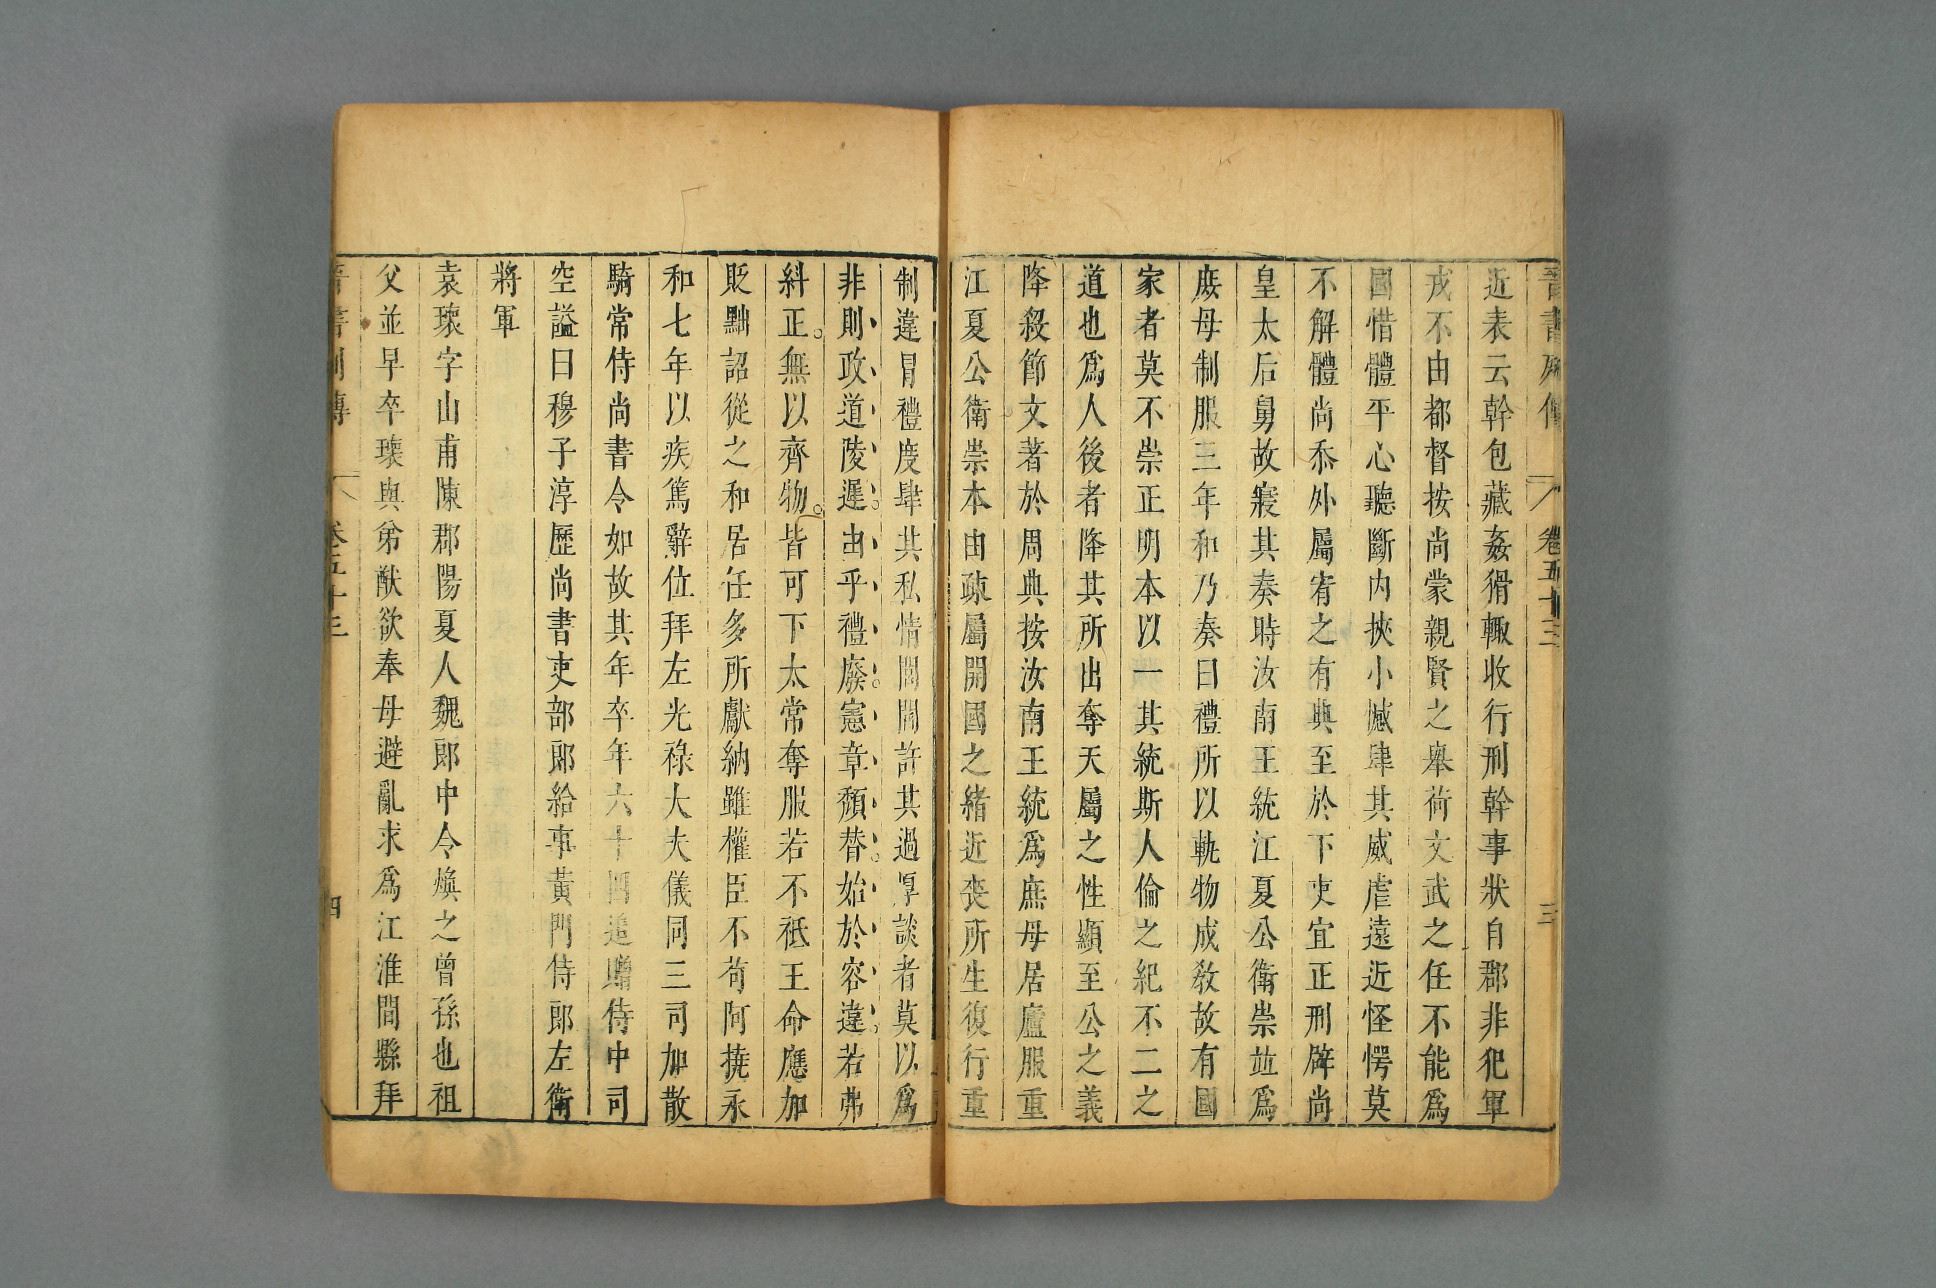 晉書列傳 卷五十三 三
近表云幹包藏姦猾輙收行刑幹事狀自郡非犯軍
戎不由都督按尚蒙親賢之舉荷文武之任不能爲
國惜體平心聽斷內挾小憾肆其威虐遠近怪愕莫
不解體尚忝外屬宥之有典至於下吏宜正刑辟尚
皇太后舅故寢其奏時汝南王統江夏公衛崇並爲
庶母制服三年和乃奏曰禮所以軌物成敎故有國
家者莫不崇正明本以一其統斯人倫之紀不二之
道也爲人後者降其所出奪天屬之性顯至公之義
降殺節文著於周典按汝南王統爲庶母居廬服重
江夏公衛崇本由疎屬開國之緒近喪所生復行重
制違冒禮度肆其私情閭閻許其過厚談者莫以爲
非則政道陵遲由乎禮廢憲章頽替始於容違若弗
糾正無以齊物皆可下太常奪服若不祗王命應加
貶黜詔從之和居任多所獻納雖權臣不苟阿撓永
和七年以疾篤辭位拜左光祿大夫儀同三司加散
騎常侍尚書令如故其年卒年六十四追贈侍中司
空謚曰穆子淳歷尚書吏部郎給事黃門侍郎左衛
將軍
袁瓌字山甫陳郡陽夏人魏郎中令煥之曾孫也祖
父並早卒瓌與弟猷欲奉母避亂求爲江淮間縣拜
晉書列傳 卷五十三 四